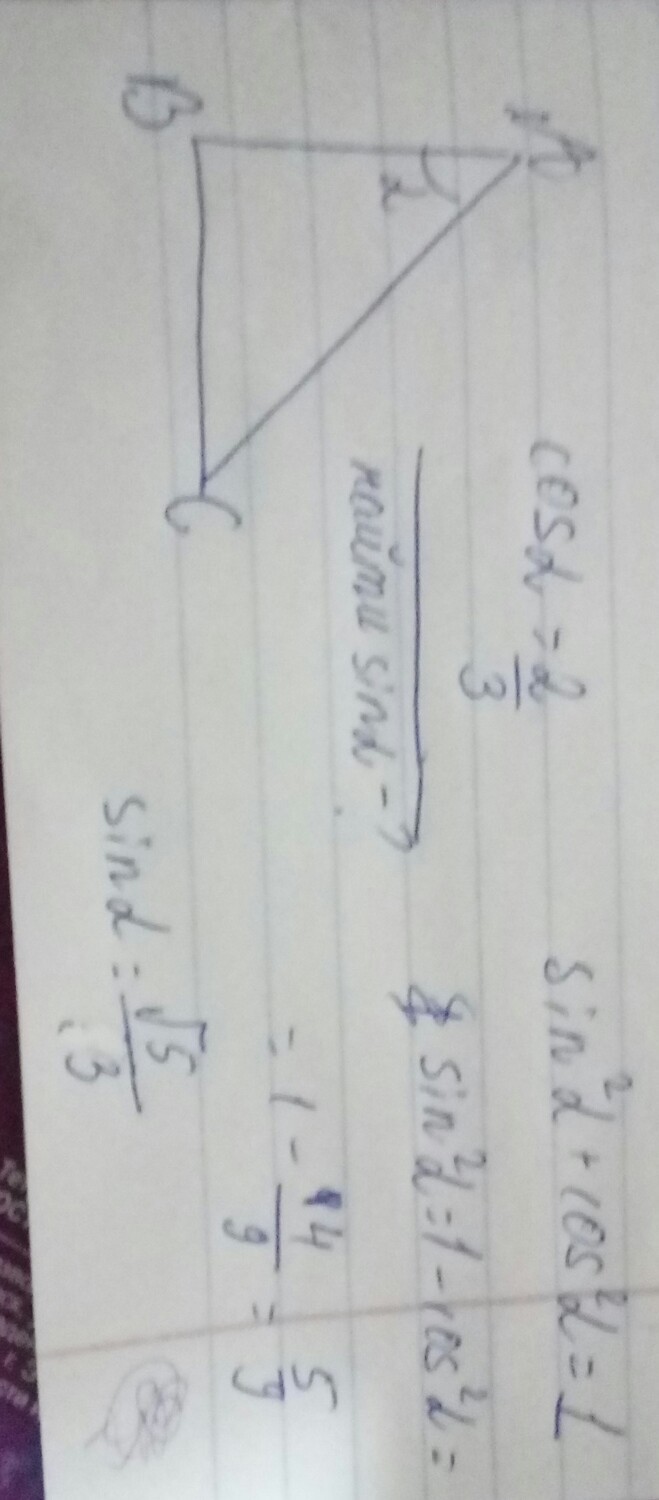 A
B
C
α
cosα = 2/3
найти sinα - ?
sin²α + cos²α = 1
sin²α = 1 - cos²α =
= 1 - 4/9 = 5/9
sinα = √5/3